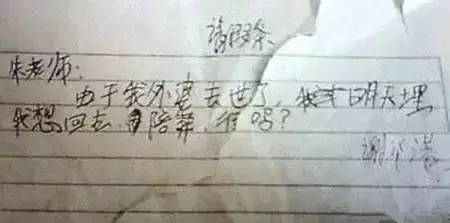 请假条
朱老师:
由于我外婆去世了,我 明天埋
我想回去 陪葬,行吗?
谢 港